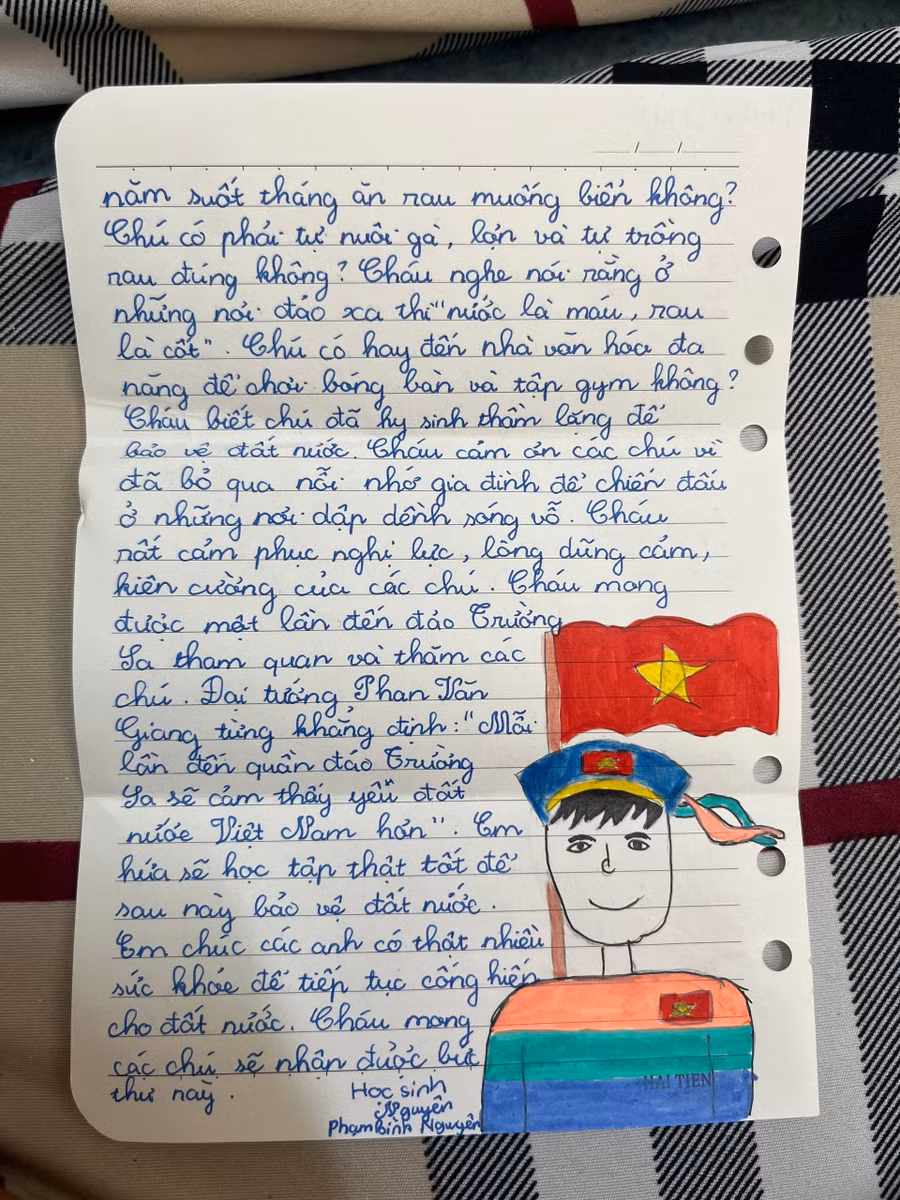 năm suốt tháng ăn rau muống biển không?
Chú có phải tự nuôi gà, lợn và tự trồng
rau đúng không? Cháu nghe nói rằng ở
những nơi đảo xa thì "nước là máu, rau
là cốt". Chú có hay đến nhà văn hóa đa
năng để chơi bóng bàn và tập gym không?
Cháu biết chú đã hy sinh thầm lặng để
bảo vệ đất nước. Cháu cảm ơn các chú vì
đã bỏ qua nỗi nhớ gia đình để chiến đấu
ở những nơi dập dềnh sóng vỗ. Cháu
rất cảm phục nghị lực, lòng dũng cảm,
kiên cường của các chú. Cháu mong
được một lần đến đảo Trường
Sa tham quan và thăm các
chú. Đại tướng Phan Văn
Giang từng khẳng định: "Mỗi
lần đến quần đảo Trường
Sa sẽ cảm thấy yêu đất
nước Việt Nam hơn". Em
hứa sẽ học tập thật tốt để
sau này bảo vệ đất nước.
Em chúc các anh có thật nhiều
sức khỏe để tiếp tục cống hiến
cho đất nước. Cháu mong
các chú sẽ nhận được bức
thư này.
Học sinh
Nguyên
Phạm Bình Nguyên
HẢI TIẾN